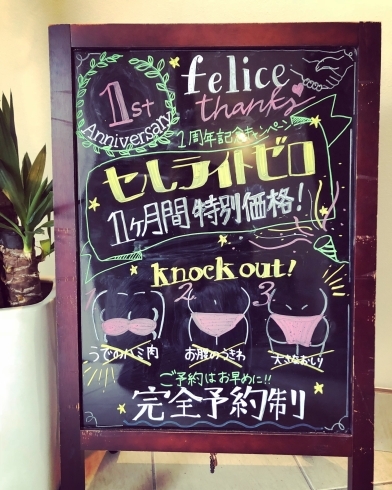 1st
Anniversary
felice
thanks
1周年記念キャンペーン
セルライトゼロ
1ヶ月間 特別価格!
knock out!
1 2 3
うでのハミ肉 お腹のうきわ 大きなおしり
ご予約はお早めに!!
完全予約制